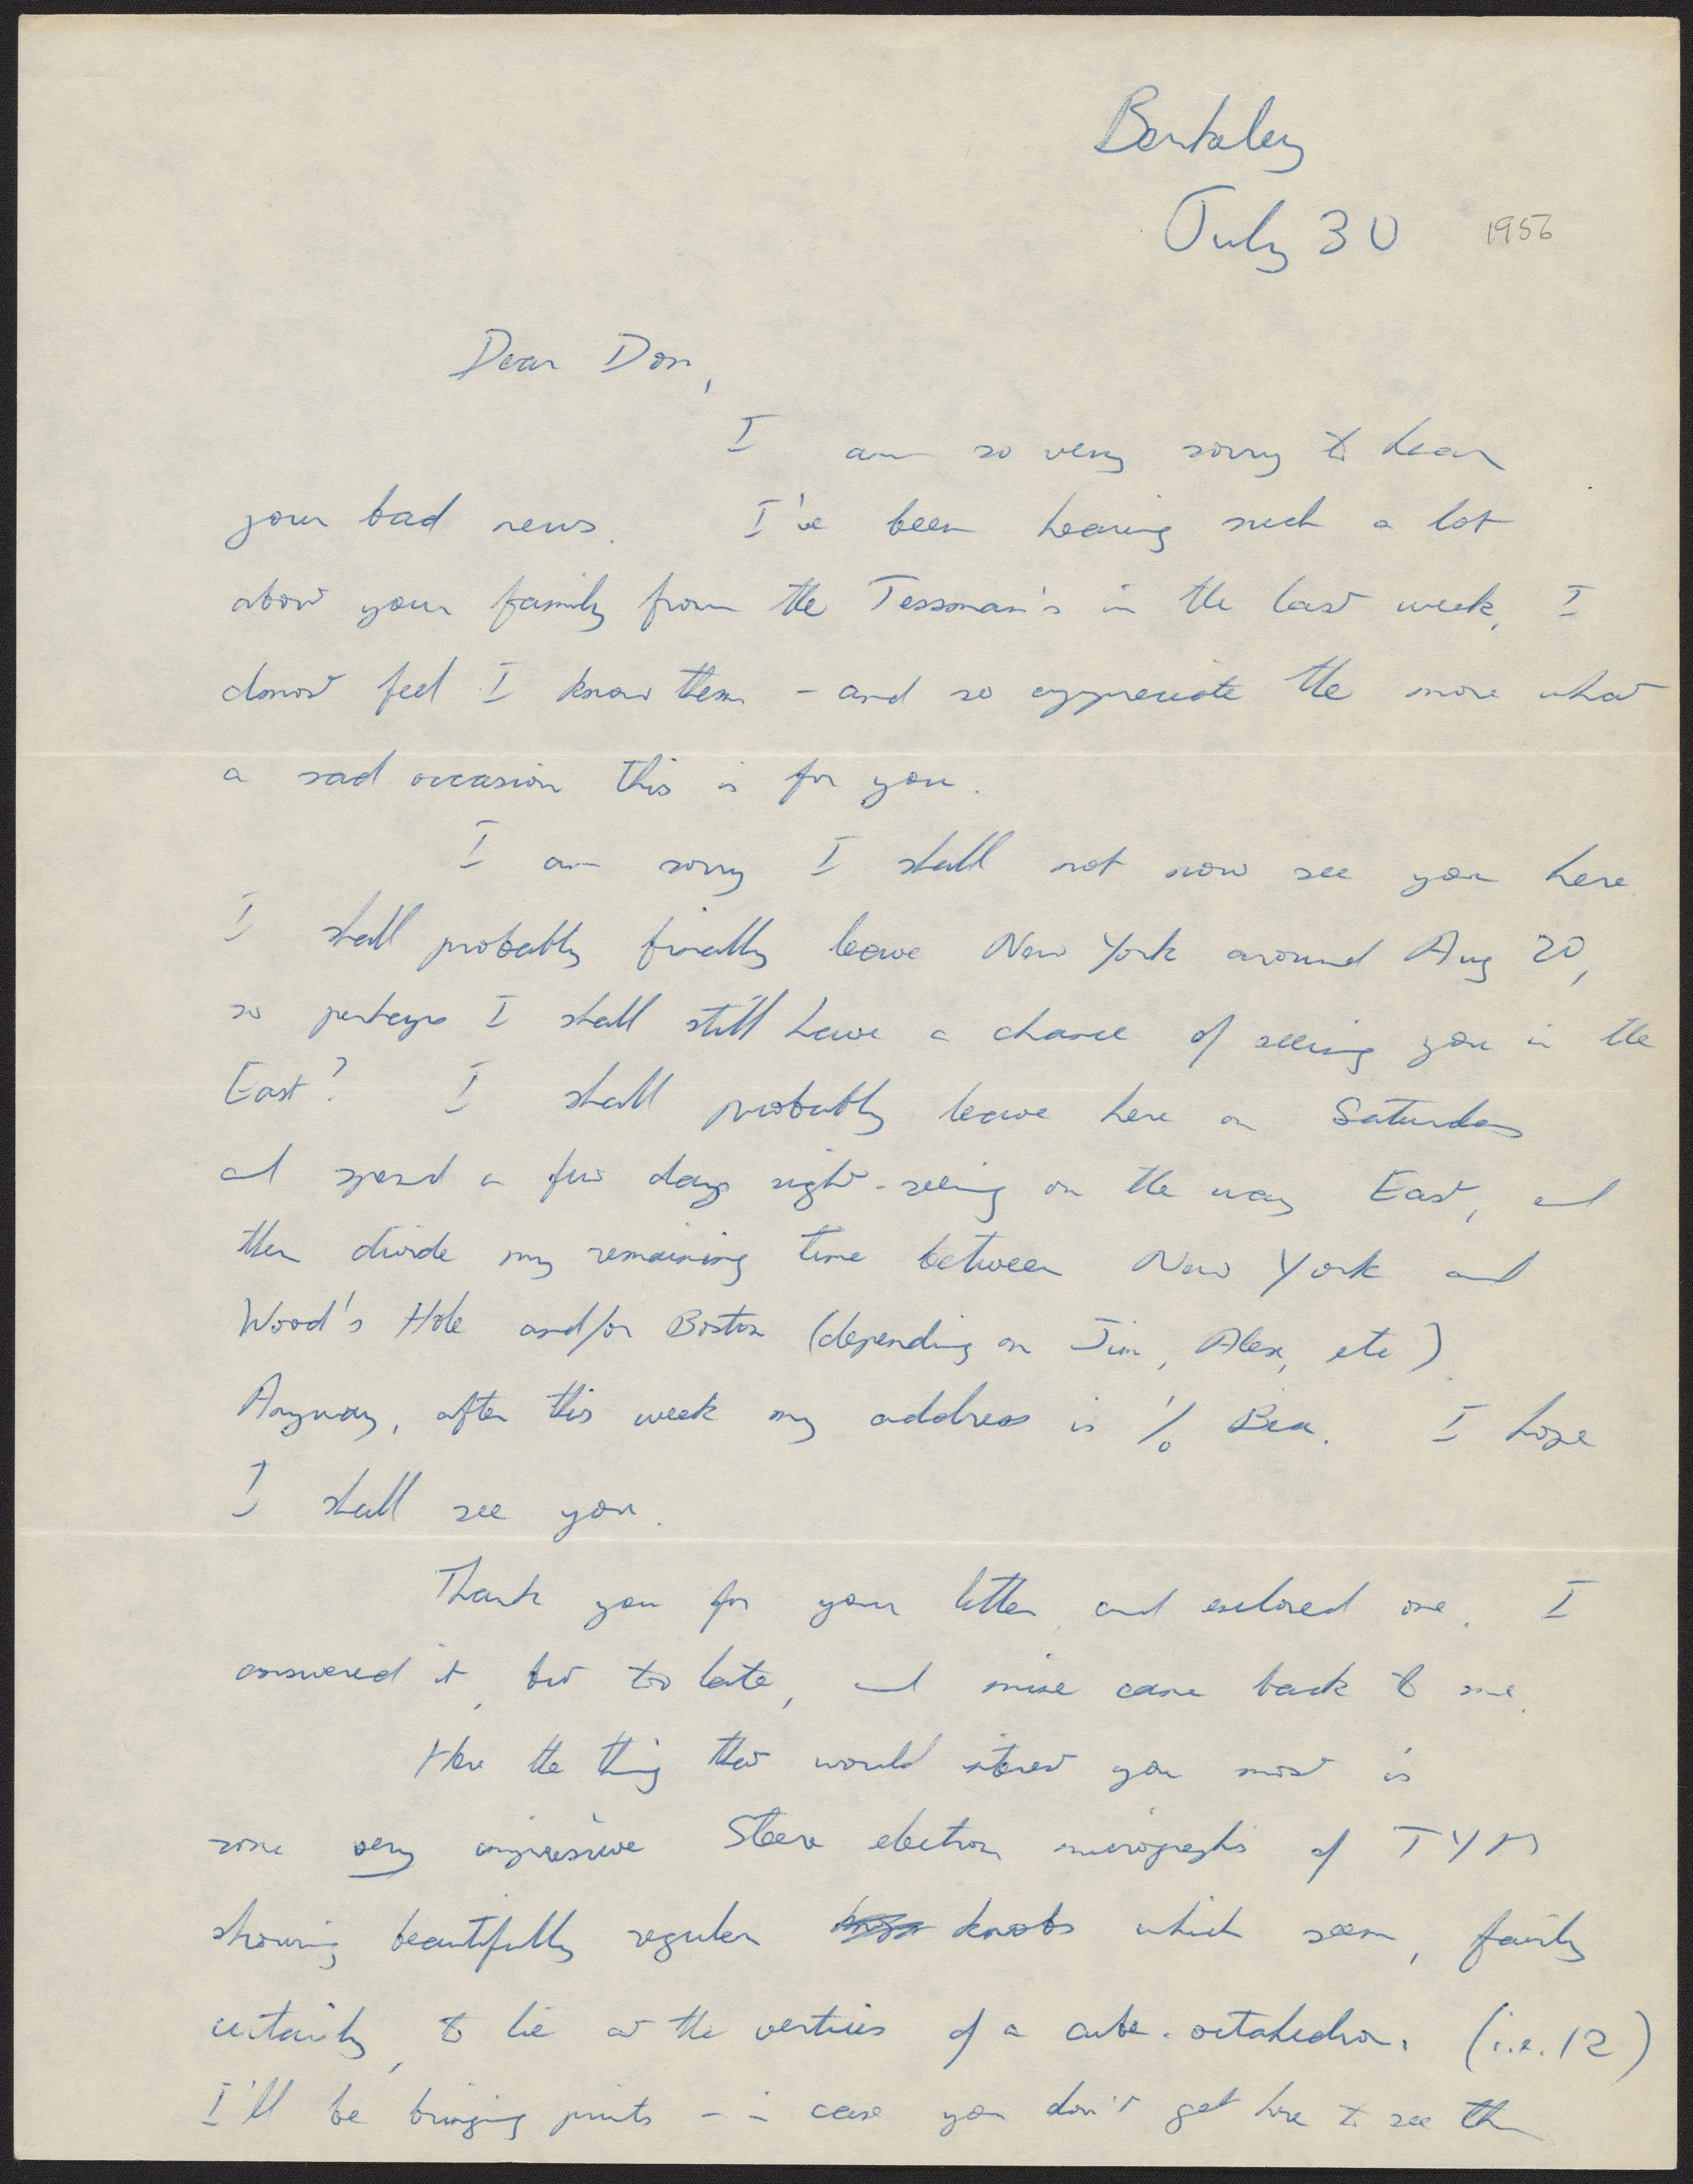 Berkeley
July 30 1956
Dear Don,
I am so very sorry to hear
your bad news. I've been hearing such a lot
about your family from the Tessman's in the last week, I
almost feel I know them - and so appreciate the more what
a sad occasion this is for you.
I am sorry I shall not now see you here.
I shall probably finally leave New York around Aug 20,
so perhaps I shall still have a chance of seeing you in the
East? I shall probably leave here on Saturday
and spend a few days sight-seeing on the way East, and
then divide my remaining time between New York and
Wood's Hole and/or Boston (depending on Jim, Alex, etc).
Anyway, after this week my address is % Bea. I hope
I shall see you.
Thank you for your letter and enclosed one. I
answered it, but too late, and mine came back to me.
Here the thing that would interest you most is
some very impressive Steere electron micrographs of TYM
showing beautifully regular knobs which seem, fairly
certainly, to lie at the vertices of a cube-octahedron. (i.e. 12)
I'll be bringing prints - in case you don't get here to see them